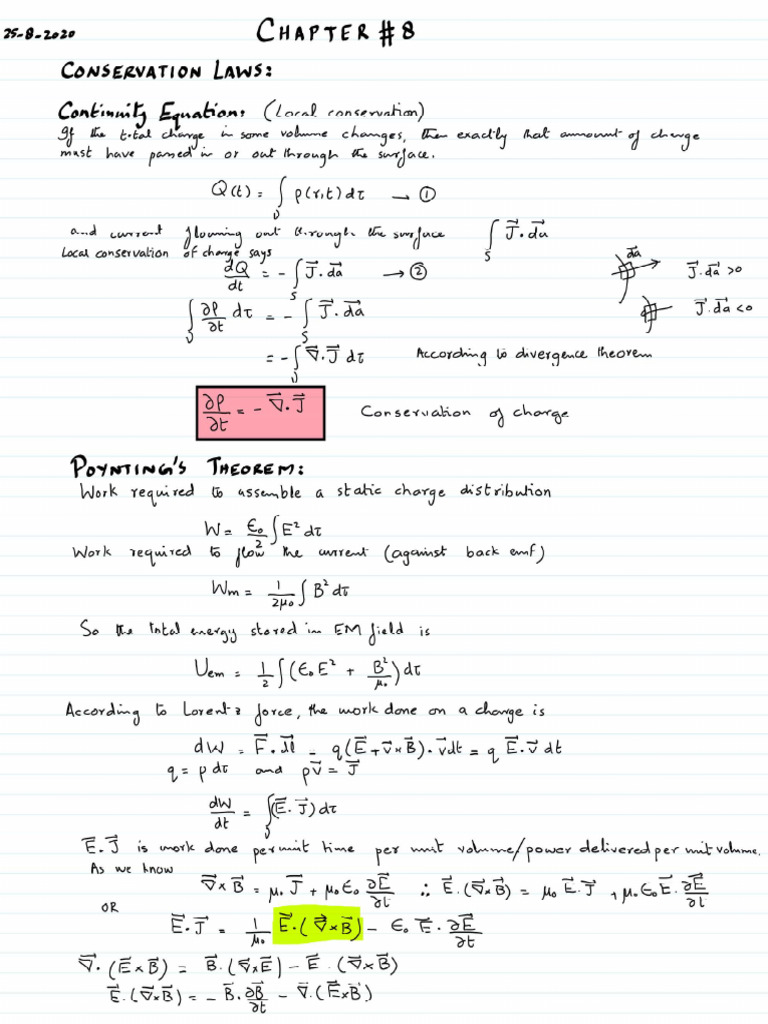 25-8-2020
CHAPTER #8
CONSERVATION LAWS:
Continuity Equation: (Local conservation)
If the total charge in some volume changes, then exactly that amount of charge
must have passed in or out through the surface.
Q(t) = ∫_V ρ(r,t) dτ → ①
and current flowing out through the surface ∫_S J⃗.da⃗
Local conservation of charge says
dQ/dt = - ∫_S J⃗.da⃗ → ②
da⃗ J⃗.da⃗ >0
∫_V ∂ρ/∂t dτ = - ∫_S J⃗.da⃗
J⃗.da⃗ <0
= - ∫_V ∇⃗.J⃗ dτ According to divergence theorem
∂ρ/∂t = - ∇⃗.J⃗ Conservation of charge
POYNTING'S THEOREM:
Work required to assemble a static charge distribution
W = ε₀/2 ∫ E² dτ
Work required to flow the current (against back emf)
Wm = 1/2μ₀ ∫ B² dτ
So the total energy stored in EM field is
Uem = 1/2 ∫ (ε₀E² + B²/μ₀) dτ
According to Lorentz force, the work done on a charge is
dW = F⃗.dl⃗ = q(E⃗+v⃗×B⃗).v⃗dt = q E⃗.v⃗ dt
q = ρ dτ and ρv⃗ = J⃗
dW/dt = ∫_V (E⃗.J⃗) dτ
E⃗.J⃗ is work done per unit time per unit volume/power delivered per unit volume.
As we know
∇⃗×B⃗ = μ₀ J⃗ + μ₀ε₀ ∂E⃗/∂t ∴ E⃗.(∇⃗×B⃗) = μ₀ E⃗.J⃗ + μ₀ε₀E⃗.∂E⃗/∂t
OR
E⃗.J⃗ = 1/μ₀ E⃗.(∇⃗×B⃗) - ε₀ E⃗.∂E⃗/∂t
∇⃗.(E⃗×B⃗) = B⃗.(∇⃗×E⃗) - E⃗.(∇⃗×B⃗)
E⃗.(∇⃗×B⃗) = - B⃗.∂B⃗/∂t - ∇⃗.(E⃗×B⃗)